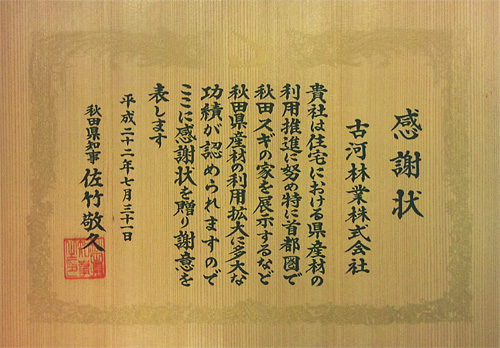 感謝状
古河林業株式会社
貴社は住宅における県産材の
利用推進に努め特に首都圏で
秋田スギの家を展示するなど
秋田県産材の利用拡大に多大な
功績が認められますので
ここに感謝状を贈り謝意を
表します
平成二十二年七月三十一日
秋田県知事 佐竹敬久